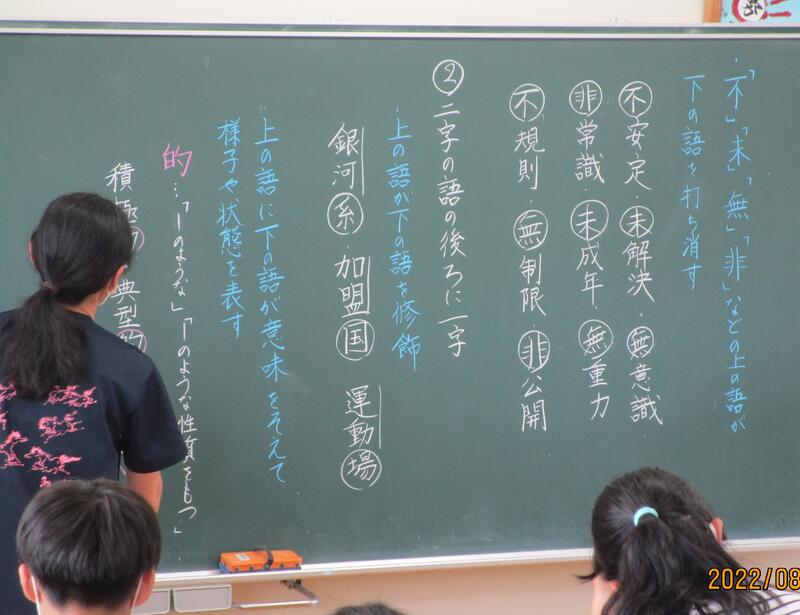 ・「不」「未」「無」「非」などの上の語が
下の語を打ち消す
不安定・未解決・無意識
非常識・未成年・無重力
不規則・無制限・非公開
② 二字の語の後ろに一字
・上の語が下の語を修飾
銀河系・加盟国 運動場
・上の語に下の語が意味をそえて
様子や状態を表す
的…「〜のような」「〜のような性質をもつ」
積極的 典型的
2022/08